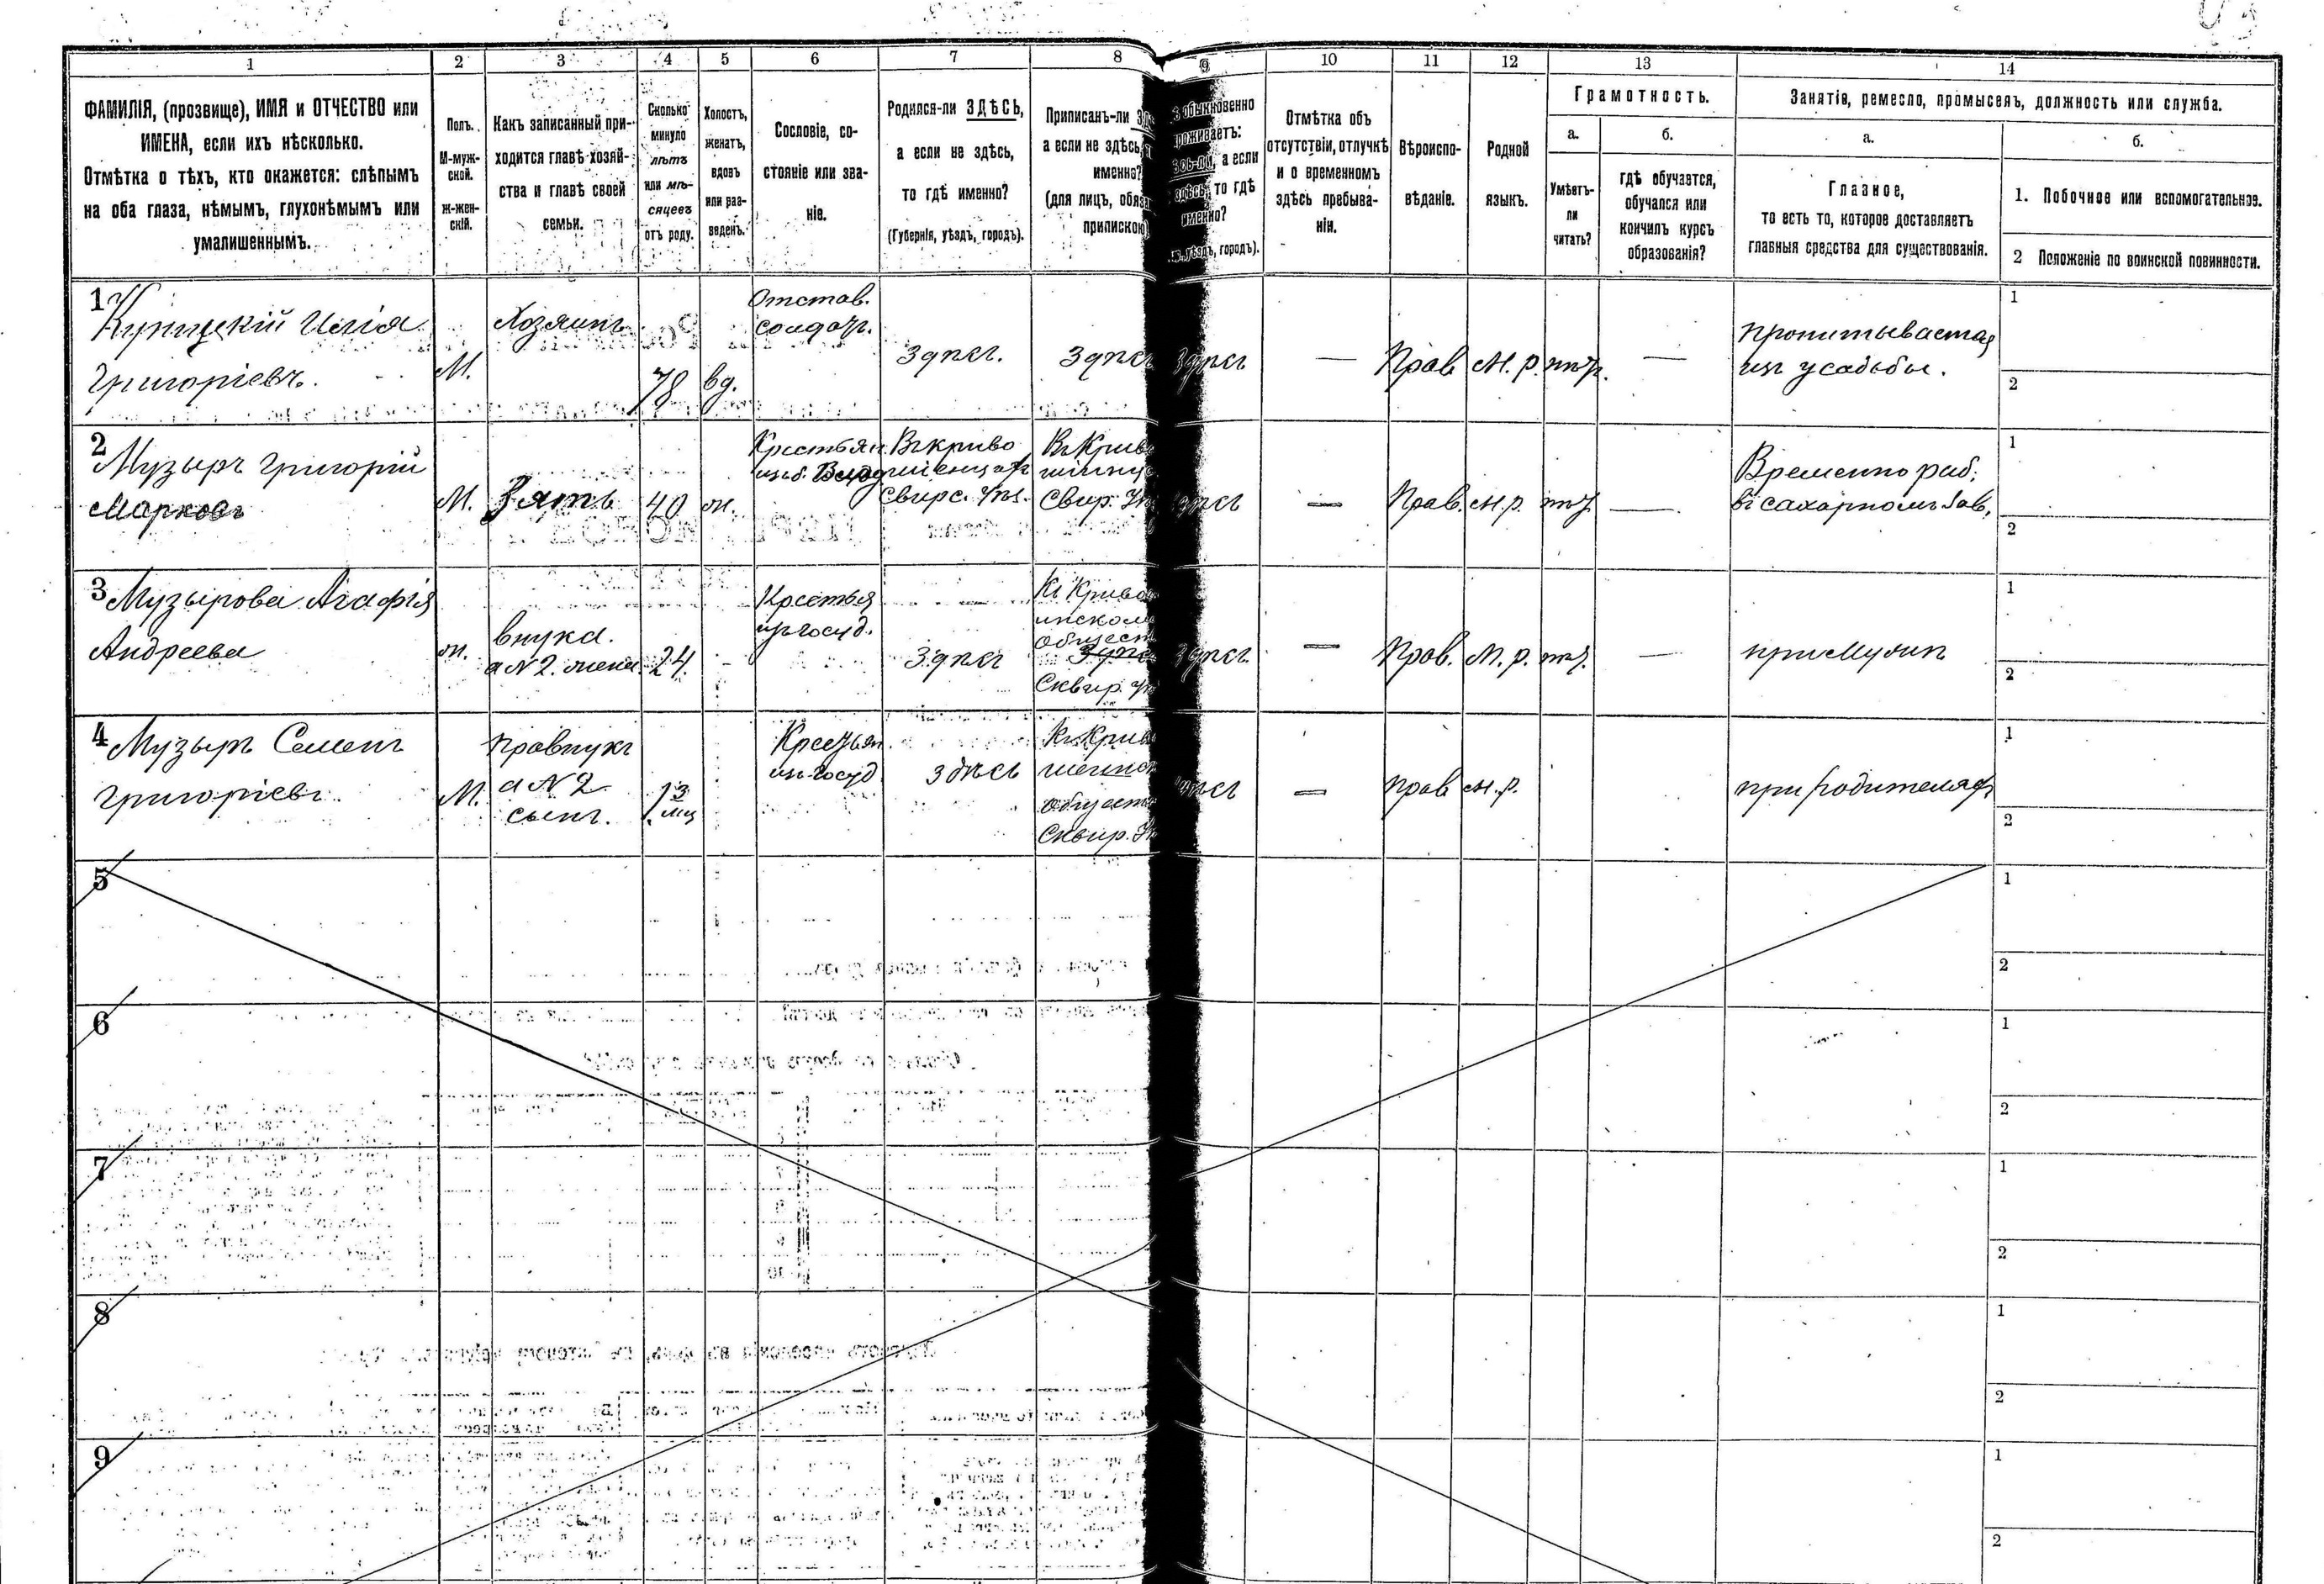 1
2
3
4
5
6
7
8
9
10
11
12
13
14
ФАМИЛІЯ, (прозвище), ИМЯ и ОТЧЕСТВО или
ИМЕНА, если ихъ нѣсколько.
Отмѣтка о тѣхъ, кто окажется: слѣпымъ
на оба глаза, нѣмымъ, глухонѣмымъ или
умалишеннымъ.
Полъ.
М-муж-
ской.
ж-жен-
скій.
Какъ записанный при-
ходится главѣ хозяй-
ства и главѣ своей
семьи.
Сколько
минуло
лѣтъ
или мѣ-
сяцевъ
отъ роду.
Холостъ,
женатъ,
вдовъ
или раз-
веденъ.
Сословіе, со-
стояніе или зва-
ніе.
Родился-ли ЗДѢСЬ,
а если не здѣсь,
то гдѣ именно?
(Губернія, уѣздъ, городъ).
Приписанъ-ли
а если не здѣсь,
именно?
(для лицъ, обяз
припискою
обыкновенно
проживаетъ:
а если
здѣсь, то гдѣ
именно?
уѣздъ, городъ).
Отмѣтка объ
отсутствіи, отлучкѣ
и о временномъ
здѣсь пребыва-
ніи.
Вѣроиспо-
вѣданіе.
Родной
языкъ.
Грамотность.
а.
Умѣетъ-
ли
читать?
б.
гдѣ обучается,
обучался или
кончилъ курсъ
образованія?
Занятіе, ремесло, промыселъ, должность или служба.
а.
Главное,
то есть то, которое доставляетъ
главныя средства для существованія.
б.
1. Побочное или вспомогательное.
2 Положеніе по воинской повинности.
1
Илія
Григоріевъ.
М.
Хозяинъ
78
вд.
Отстав.
солдатъ.
Здѣсь.
Здѣсь
Здѣсь
—
Прав
М. р.
—
пропитывается
изъ усадьбы.
1
2
2 Музыръ Григорій
Марковъ
М.
Зять
40
ж.
Крестьян
Въ Криво
шіенцахъ
Сквирс. уѣз.
Въ Криво
Сквир. Уѣ
—
Прав.
м. р.
—
Временно раб.
въ сахарномъ Зав.
1
2
3 Музырова Агафія
Андреева
ж.
внука.
а №2. жена
24.
Крестья
изъ госуд.
Здѣсь
Къ Криво
общест
Сквир. Уѣ
Здѣсь
—
Прав.
М. р.
—
при мужѣ
1
2
4 Музыръ Семенъ
Григоріевъ
М.
правнукъ
а №2
сынъ.
3
мц
Крестьян
изъ госуд
здѣсь
Къ Крив
обществ
Сквир. Уѣ
—
прав
м. р.
при родителяхъ
1
2
5
1
2
6
1
2
7
1
2
8
1
2
9
1
2